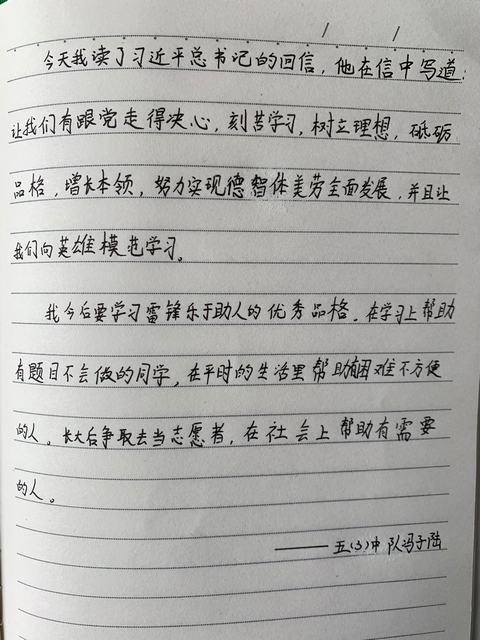 今天我读了习近平总书记的回信，他在信中写道：
让我们有跟党走得决心，刻苦学习，树立理想，砥砺
品格，增长本领，努力实现德智体美劳全面发展，并且让
我们向英雄模范学习。
我今后要学习雷锋乐于助人的优秀品格。在学习上帮助
有题目不会做的同学，在平时的生活里帮助有困难不方便
的人。长大后争取去当志愿者，在社会上帮助有需要
的人。
——五(3)中队冯子陆